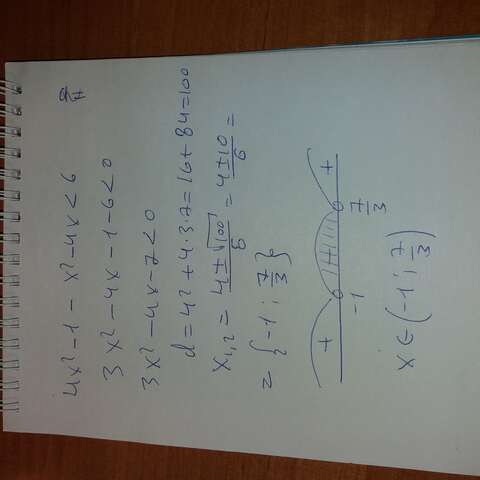 4x² - 1 - x² - 4x < 6
3x² - 4x - 1 - 6 < 0
3x² - 4x - 7 < 0
d = 4² + 4·3·7 = 16 + 84 = 100
x₁,₂ = (4 ± √100)/6 = (4 ± 10)/6 =
= {-1; 7/3}
+ +
-1 7/3
x ∈ (-1; 7/3)